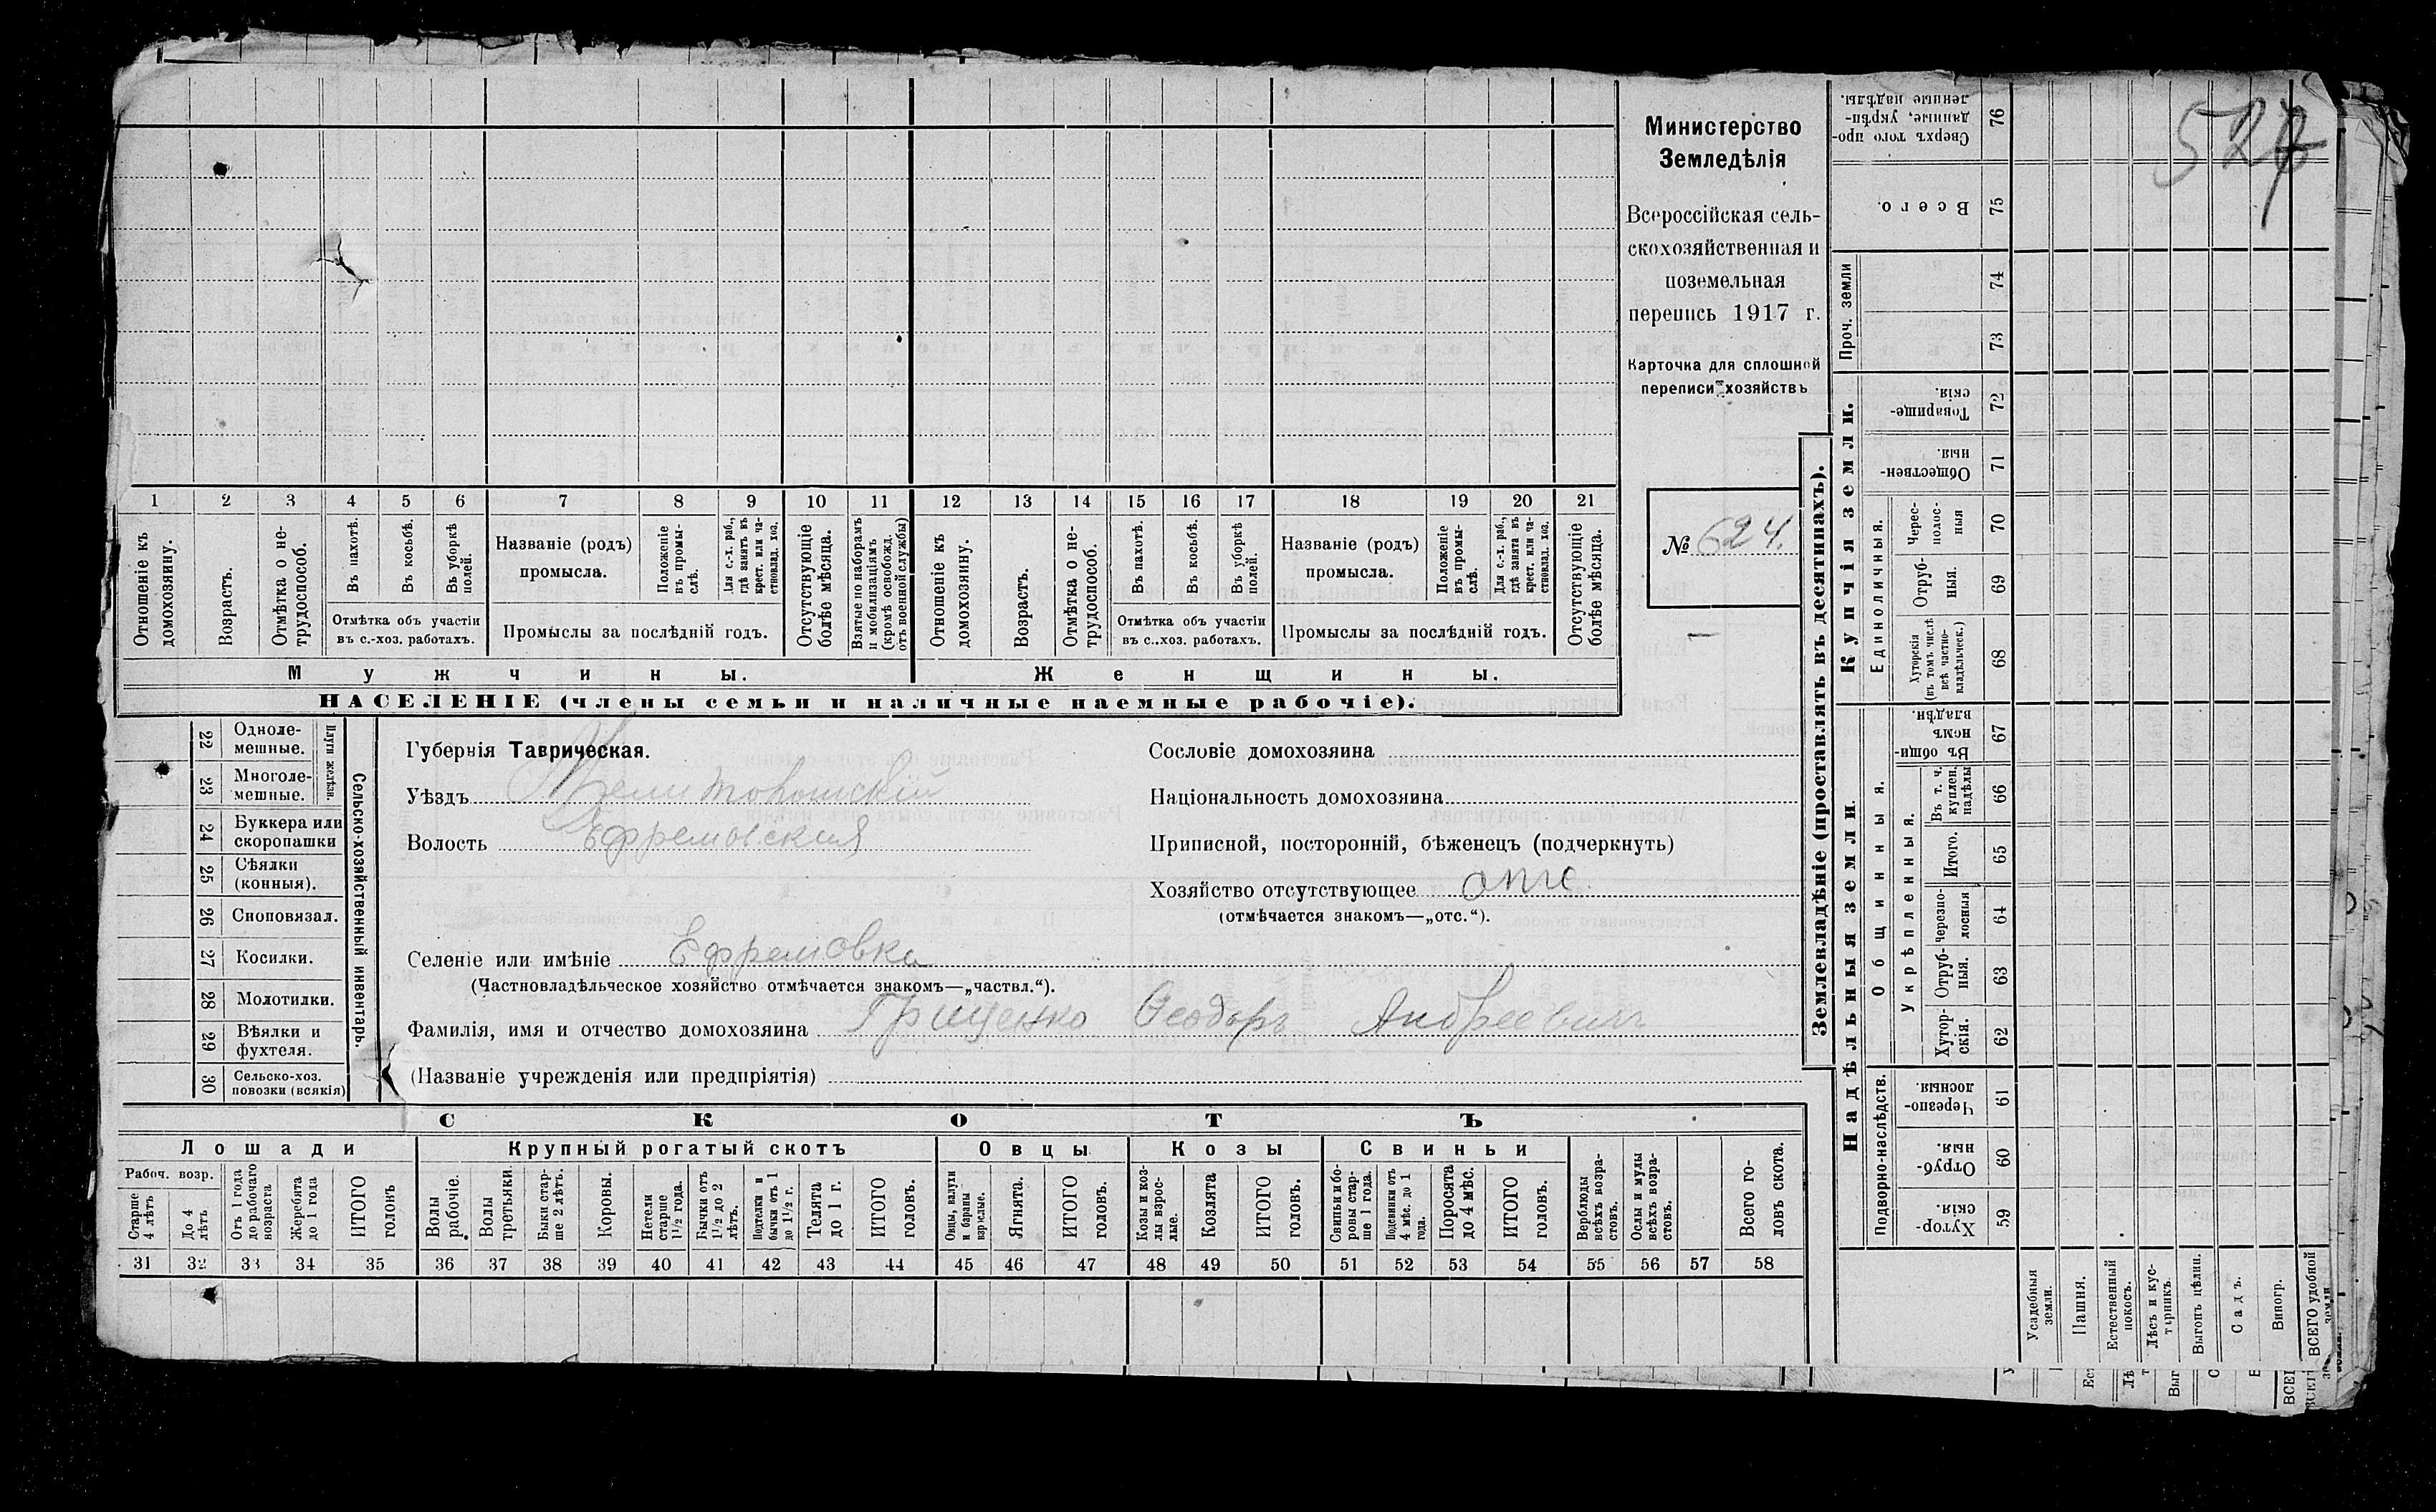 527
1 2 3 4 5 6 7 8 9 10 11 12 13 14 15 16 17 18 19 20 21
Отношеніе къ домохозяину.
Возрастъ.
Отмѣтка о не-
трудоспособ.
Въ пахотѣ.
Въ косьбѣ.
Въ уборкѣ
полей.
Отмѣтка объ участіи
въ с.-хоз. работахъ.
Названіе (родъ)
промысла.
Положеніе
въ промы-
слѣ.
Для с.-х. раб.,
гдѣ занятъ въ
крест. или ча-
стновлад. хоз.
Промыслы за послѣдній годъ.
Отсутствующіе
болѣе мѣсяца.
Взятые по наборамъ
и мобилизаціямъ
(кромѣ освобожд.
отъ военной службы)
Отношеніе къ
домохозяину.
Возрастъ.
Отмѣтка о не-
трудоспособ.
Въ пахотѣ.
Въ косьбѣ.
Въ уборкѣ
полей.
Отмѣтка объ участіи
въ с..хоз. работахъ.
Названіе (родъ)
промысла.
Положеніе
въ промы-
слѣ.
Для с.-х. раб.,
гдѣ занята въ
крест. или ча-
стновлад. хоз.
Промыслы за послѣдній годъ.
Отсутствующіе
болѣе мѣсяца.
Мужчины.
Женщины.
НАСЕЛЕНІЕ (члены семьи и наличные наемные рабочіе).
Министерство
Земледѣлія
Всероссійская сель-
скохозяйственная и
поземельная
перепись 1917 г.
Карточка для сплошной
переписи хозяйствъ
№ 624.
22 Одноле-
мешные.
23 Многоле-
мешные.
Плуги желѣзн.
24 Буккера или
скоропашки
25 Сѣялки
(конныя).
26 Сноповязал.
27 Косилки.
28 Молотилки.
29 Вѣялки и
фухтеля.
30 Сельско-хоз.
повозки (всякія)
Сельско-хозяйственный инвентарь.
Губернія Таврическая.
Уѣздъ Мелитопольскій
Волость Ефремовская
Сословіе домохозяина
Національность домохозяина
Приписной, посторонній, бѣженецъ (подчеркнуть)
Хозяйство отсутствующее отс.
(отмѣчается знакомъ—„отс.“).
Селеніе или имѣніе Ефремовка
(Частновладѣльческое хозяйство отмѣчается знакомъ—„частвл.“).
Фамилія, имя и отчество домохозяина Грищенко Ѳеодоръ Андреевичъ
(Названіе учрежденія или предпріятія)
СКОТЪ
Лошади
Крупный рогатый скотъ
Овцы
Козы
Свиньи
Рабоч. возр.
Старше
4 лѣтъ
До 4
лѣтъ
Отъ 1 года
до рабочаго
возраста
Жеребята
до 1 года
ИТОГО
головъ
Волы
рабочіе.
Волы
третьяки
Быки стар-
ше 2 лѣтъ.
Коровы.
Нетели
старше
1½ года.
Бычки отъ
1½ до 2
лѣтъ.
Подтелки и
бычки отъ 1
до 1½ г.
Телята
до 1 г.
ИТОГО
головъ.
Овцы, валухи
и бараны
взрослые.
Ягнята.
ИТОГО
головъ.
Козы и коз-
лы взрос-
лые.
Козлята
ИТОГО
головъ.
Свиньи и бо-
ровы стар-
ше 1 года.
Подсвинки отъ
4 мѣс. до 1
года.
Поросята
до 4 мѣс.
ИТОГО
головъ.
Верблюды
всѣхъ возра-
стовъ.
Ослы и мулы
всѣхъ возра-
стовъ.
Всего го-
ловъ скота.
31 32 33 34 35 36 37 38 39 40 41 42 43 44 45 46 47 48 49 50 51 52 53 54 55 56 57 58
Землевладѣніе (проставлять въ десятинахъ).
Купчія земли.
Надѣльныя земли.
Проч. земли
Единоличныя.
Общинныя.
Укрѣпленныя.
Подворно-наслѣдств.
Сверхъ того про-
данные, укрѣп-
ленные надѣлы. 76
Всего. 75
74
73
Товарище-
скія. 72
Обществен-
ныя. 71
Черес-
полос-
ныя 70
Отруб-
ныя. 69
Хуторскія
(въ томъ числѣ
всѣ частно-
владѣльческ.) 68
Въ общи-
номъ
владѣн. 67
Въ т. ч.
куплен.
надѣлы 66
Итого. 65
Черезпо-
лосныя 64
Отруб-
ныя. 63
Хутор-
скія. 62
Черезпо-
лосныя 61
Отруб-
ныя. 60
Хутор-
скія. 59
Усадебныя
земли.
Пашня.
Естественный
покосъ.
Лѣсъ и кус-
тарникъ.
Выгонъ цѣлин.
Садъ.
Виногр.
ВСЕГО удобной
земли